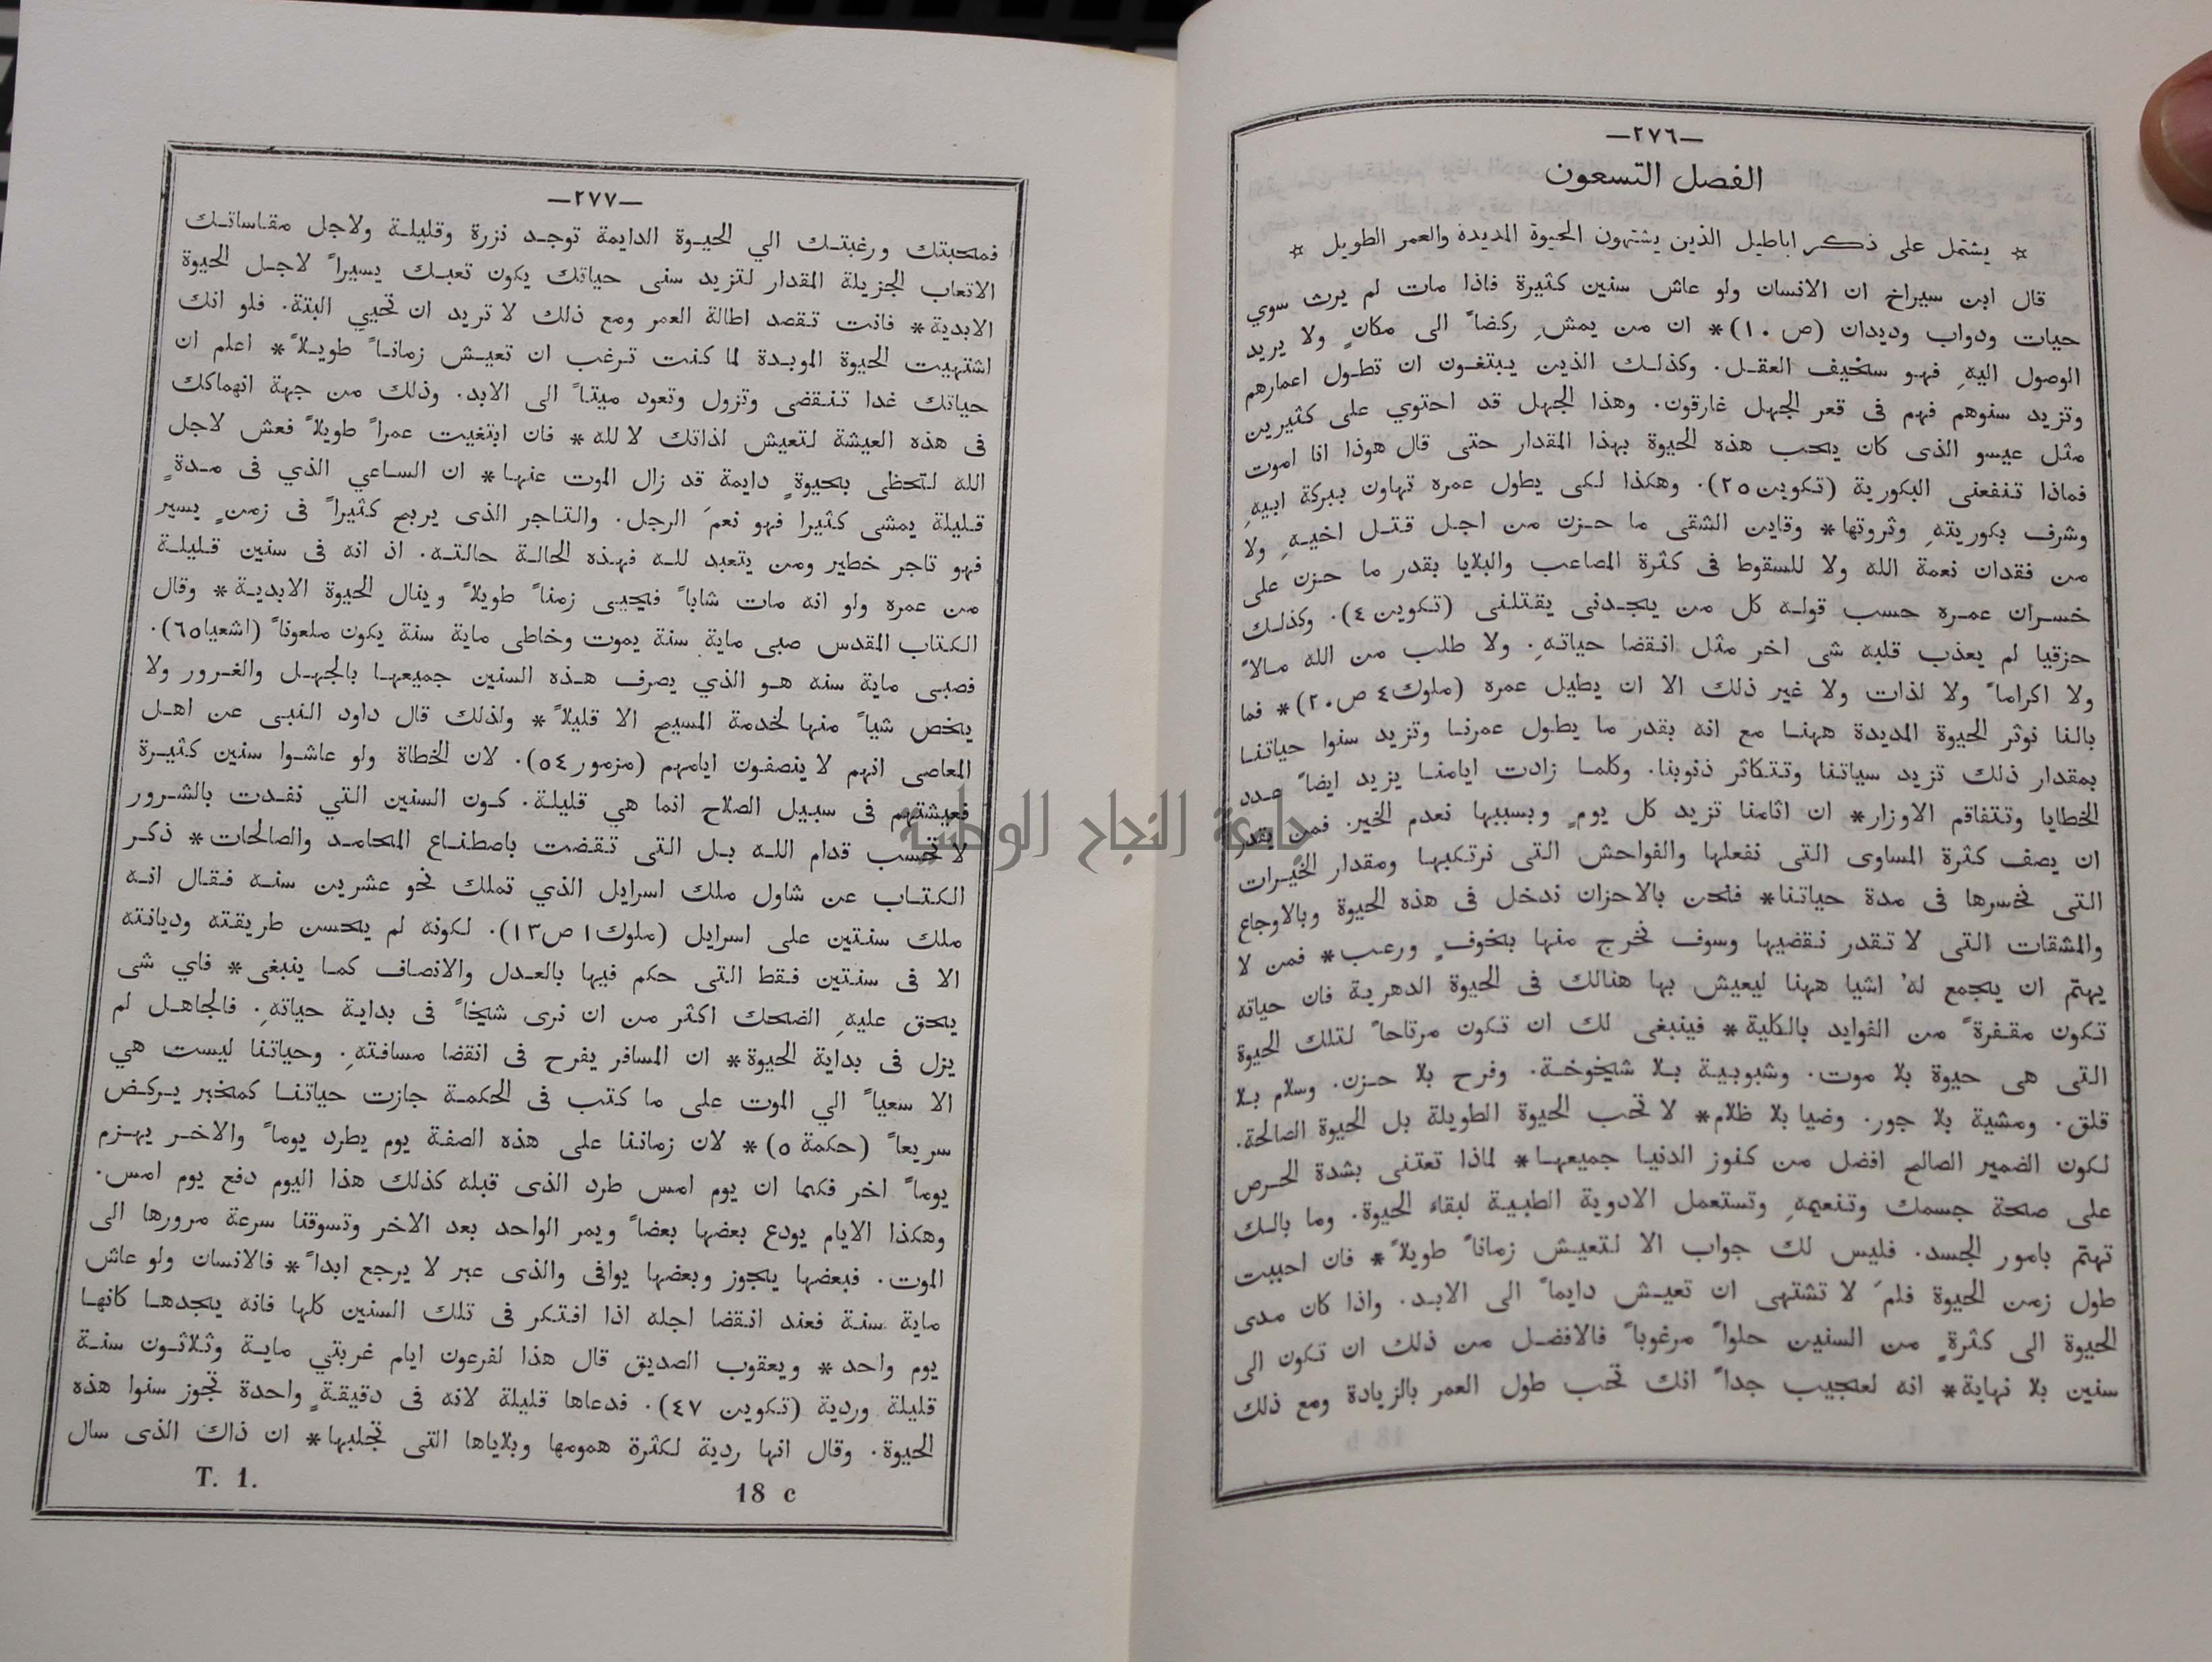 —٢٧٦—
الفصل التسعون
☆ يشتمل على ذكر اباطيل الذين يشتهون الحيوة المديدة والعمر الطويل ☆
قال ابن سيراخ ان الانسان ولو عاش سنين كثيرة فاذا مات لم يرث سوي
حيات ودواب وديدان (ص ١٠)* ان من يمشِ ركضاً الى مكانٍ ولا يريد
الوصول اليهِ فهو سخيف العقل. وكذلك الذين يبتغون ان تطول اعمارهم
وتزيد سنوهم فهم فى قعر الجهل غارقون. وهذا الجهل قد احتوي على كثيرين
مثل عيسو الذى كان يحب هذه الحيوة بهذا المقدار حتى قال هوذا انا اموت
فماذا تنفعنى البكورية (تكوين ٢٥). وهكذا لكى يطول عمره تهاون ببركة ابيهِ
وشرف بكوريتهِ وثروتها* وقاين الشقى ما حزن من اجل قتل اخيهِ ولا
من فقدان نعمة الله ولا للسقوط فى كثرة المصاعب والبلايا بقدر ما حزن على
خسران عمره حسب قوله كل من يجدنى يقتلنى (تكوين ٤). وكذلك
حزقيا لم يعذب قلبه شى اخر مثل انقضا حياتهِ. ولا طلب من الله مالاً
ولا اكراماً ولا لذات ولا غير ذلك الا ان يطيل عمره (ملوك٤ ص٢٠)* فما
بالنا نوثر الحيوة المديدة ههنا مع انه بقدر ما يطول عمرنا وتزيد سنوا حياتنا
بمقدار ذلك تزيد سياتنا وتتكاثر ذنوبنا. وكلما زادت ايامنا يزيد ايضاً عدد
الخطايا وتتفاقم الاوزار* ان اثامنا تزيد كل يومٍ وبسببها نعدم الخير. فمن يقدر
ان يصف كثرة المساوى التى نفعلها والفواحش التى نرتكبها ومقدار الخيرات
التى نخسرها فى مدة حياتنا* فنحن بالاحزان ندخل فى هذه الحيوة وبالاوجاع
والمشقات التى لا تقدر نقضيها وسوف نخرج منها بخوفٍ ورعب* فمن لا
يهتم ان يجمع له' اشيا ههنا ليعيش بها هنالك فى الحيوة الدهرية فان حياته
تكون مقفرةً من الفوايد بالكلية* فينبغى لك ان تكون مرتاحاً لتلك الحيوة
التى هى حيوة بلا موت. وشبوبية بلا شيخوخة. وفرح بلا حزن. وسلام بلا
قلق. ومشية بلا جور. وضيا بلا ظلام* لا تحب الحيوة الطويلة بل الحيوة الصالحة.
لكون الضمير الصالح افضل من كنوز الدنيا جميعها* لماذا تعتنى بشدة الحرص
على صحة جسمك وتنعيمهِ وتستعمل الادوية الطبية لبقاء الحيوة. وما بالك
تهتم بامور الجسد. فليس لك جواب الا لتعيش زماناً طويلاً* فان احببت
طول زمن الحيوة فلمَ لا تشتهى ان تعيش دايماً الى الابد. واذا كان مدى
الحيوة الى كثرةٍ من السنين حلواً مرغوباً فالافضل من ذلك ان تكون الى
سنين بلا نهاية* انه لعجيب جداً انك تحب طول العمر بالزيادة ومع ذلك
—٢٧٧—
فمحبتك ورغبتك الي الحيوة الدايمة توجد نزرة وقليلة ولاجل مقاساتك
الاتعاب الجزيلة المقدار لتزيد سنى حياتك يكون تعبك يسيراً لاجل الحيوة
الابدية* فانت تقصد اطالة العمر ومع ذلك لا تريد ان تحيي البتة. فلو انك
اشتهيت الحيوة الموبدة لما كنت ترغب ان تعيش زماناً طويلاً* اعلم ان
حياتك غدا تنقضى وتزول وتعود ميتاً الى الابد. وذلك من جهة انهماكك
فى هذه العيشة لتعيش لذاتك لا لله* فان ابتغيت عمراً طويلاً فعش لاجل
الله لتحظى بحيوةٍ دايمة قد زال الموت عنها* ان الساعي الذي فى مدةٍ
قليلة يمشى كثيرا فهو نعمَ الرجل. والتاجر الذى يربح كثيراً فى زمنٍ يسير
فهو تاجر خطير ومن يتعبد لله فهذه الحالة حالته. اذ انه فى سنين قليلة
من عمره ولو انه مات شاباً فيحيى زمناً طويلاً وينال الحيوة الابدية* وقال
الكتاب المقدس صبى ماية سنة يموت وخاطى ماية سنة يكون ملعوناً (اشعيا٦٥).
فصبى ماية سنه هو الذي يصرف هذه السنين جميعها بالجهل والغرور ولا
يخص شياً منها لخدمة المسيح الا قليلاً* ولذلك قال داود النبى عن اهل
المعاصى انهم لا ينصفون ايامهم (مزمور٥٤). لان الخطاة ولو عاشوا سنين كثيرة
فعيشتهم فى سبيل الصلاح انما هي قليلة. كون السنين التي نفدت بالشرور
لا تحسب قدام الله بل التى تقضت باصطناع المحامد والصالحات* ذكر
الكتاب عن شاول ملك اسرايل الذي تملك نحو عشرين سنه فقال انه
ملك سنتين على اسرايل (ملوك١ ص١٣). لكونه لم يحسن طريقته وديانته
الا فى سنتين فقط التى حكم فيها بالعدل والانصاف كما ينبغى* فاي شى
يحق عليهِ الضحك اكثر من ان نرى شيخاً فى بداية حياتهِ. فالجاهل لم
يزل فى بداية الحيوة* ان المسافر يفرح فى انقضا مسافتهِ. وحياتنا ليست هي
الا سعياً الي الموت على ما كتب فى الحكمة جازت حياتنا كمخبر يركض
سريعاً (حكمة ٥)* لان زماننا على هذه الصفة يوم يطرد يوماً والاخر يهزم
يوماً اخر فكما ان يوم امس طرد الذى قبله كذلك هذا اليوم دفع يوم امس.
وهكذا الايام يودع بعضها بعضاً ويمر الواحد بعد الاخر وتسوقنا سرعة مرورها الى
الموت. فبعضها يجوز وبعضها يوافى والذى عبر لا يرجع ابداً* فالانسان ولو عاش
ماية سنة فعند انقضا اجله اذا افتكر فى تلك السنين كلها فانه يجدها كانها
يوم واحد* ويعقوب الصديق قال هذا لفرعون ايام غربتي ماية وثلاثون سنة
قليلة وردية (تكوين ٤٧). فدعاها قليلة لانه فى دقيقةٍ واحدة تجوز سنوا هذه
الحيوة. وقال انها ردية لكثرة همومها وبلاياها التى تجلبها* ان ذاك الذى سال
T. 1. 18 c
جامعة النجاح الوطنية